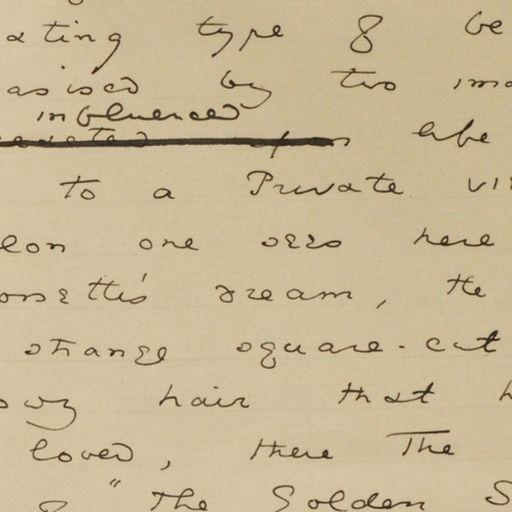 ating type of be
asised by two ima
influenced
upon life
to a Private vie
lon one sees here
ossetti's dream, the
strange square-cut
owy hair that h
loved, there The
of "The Golden S